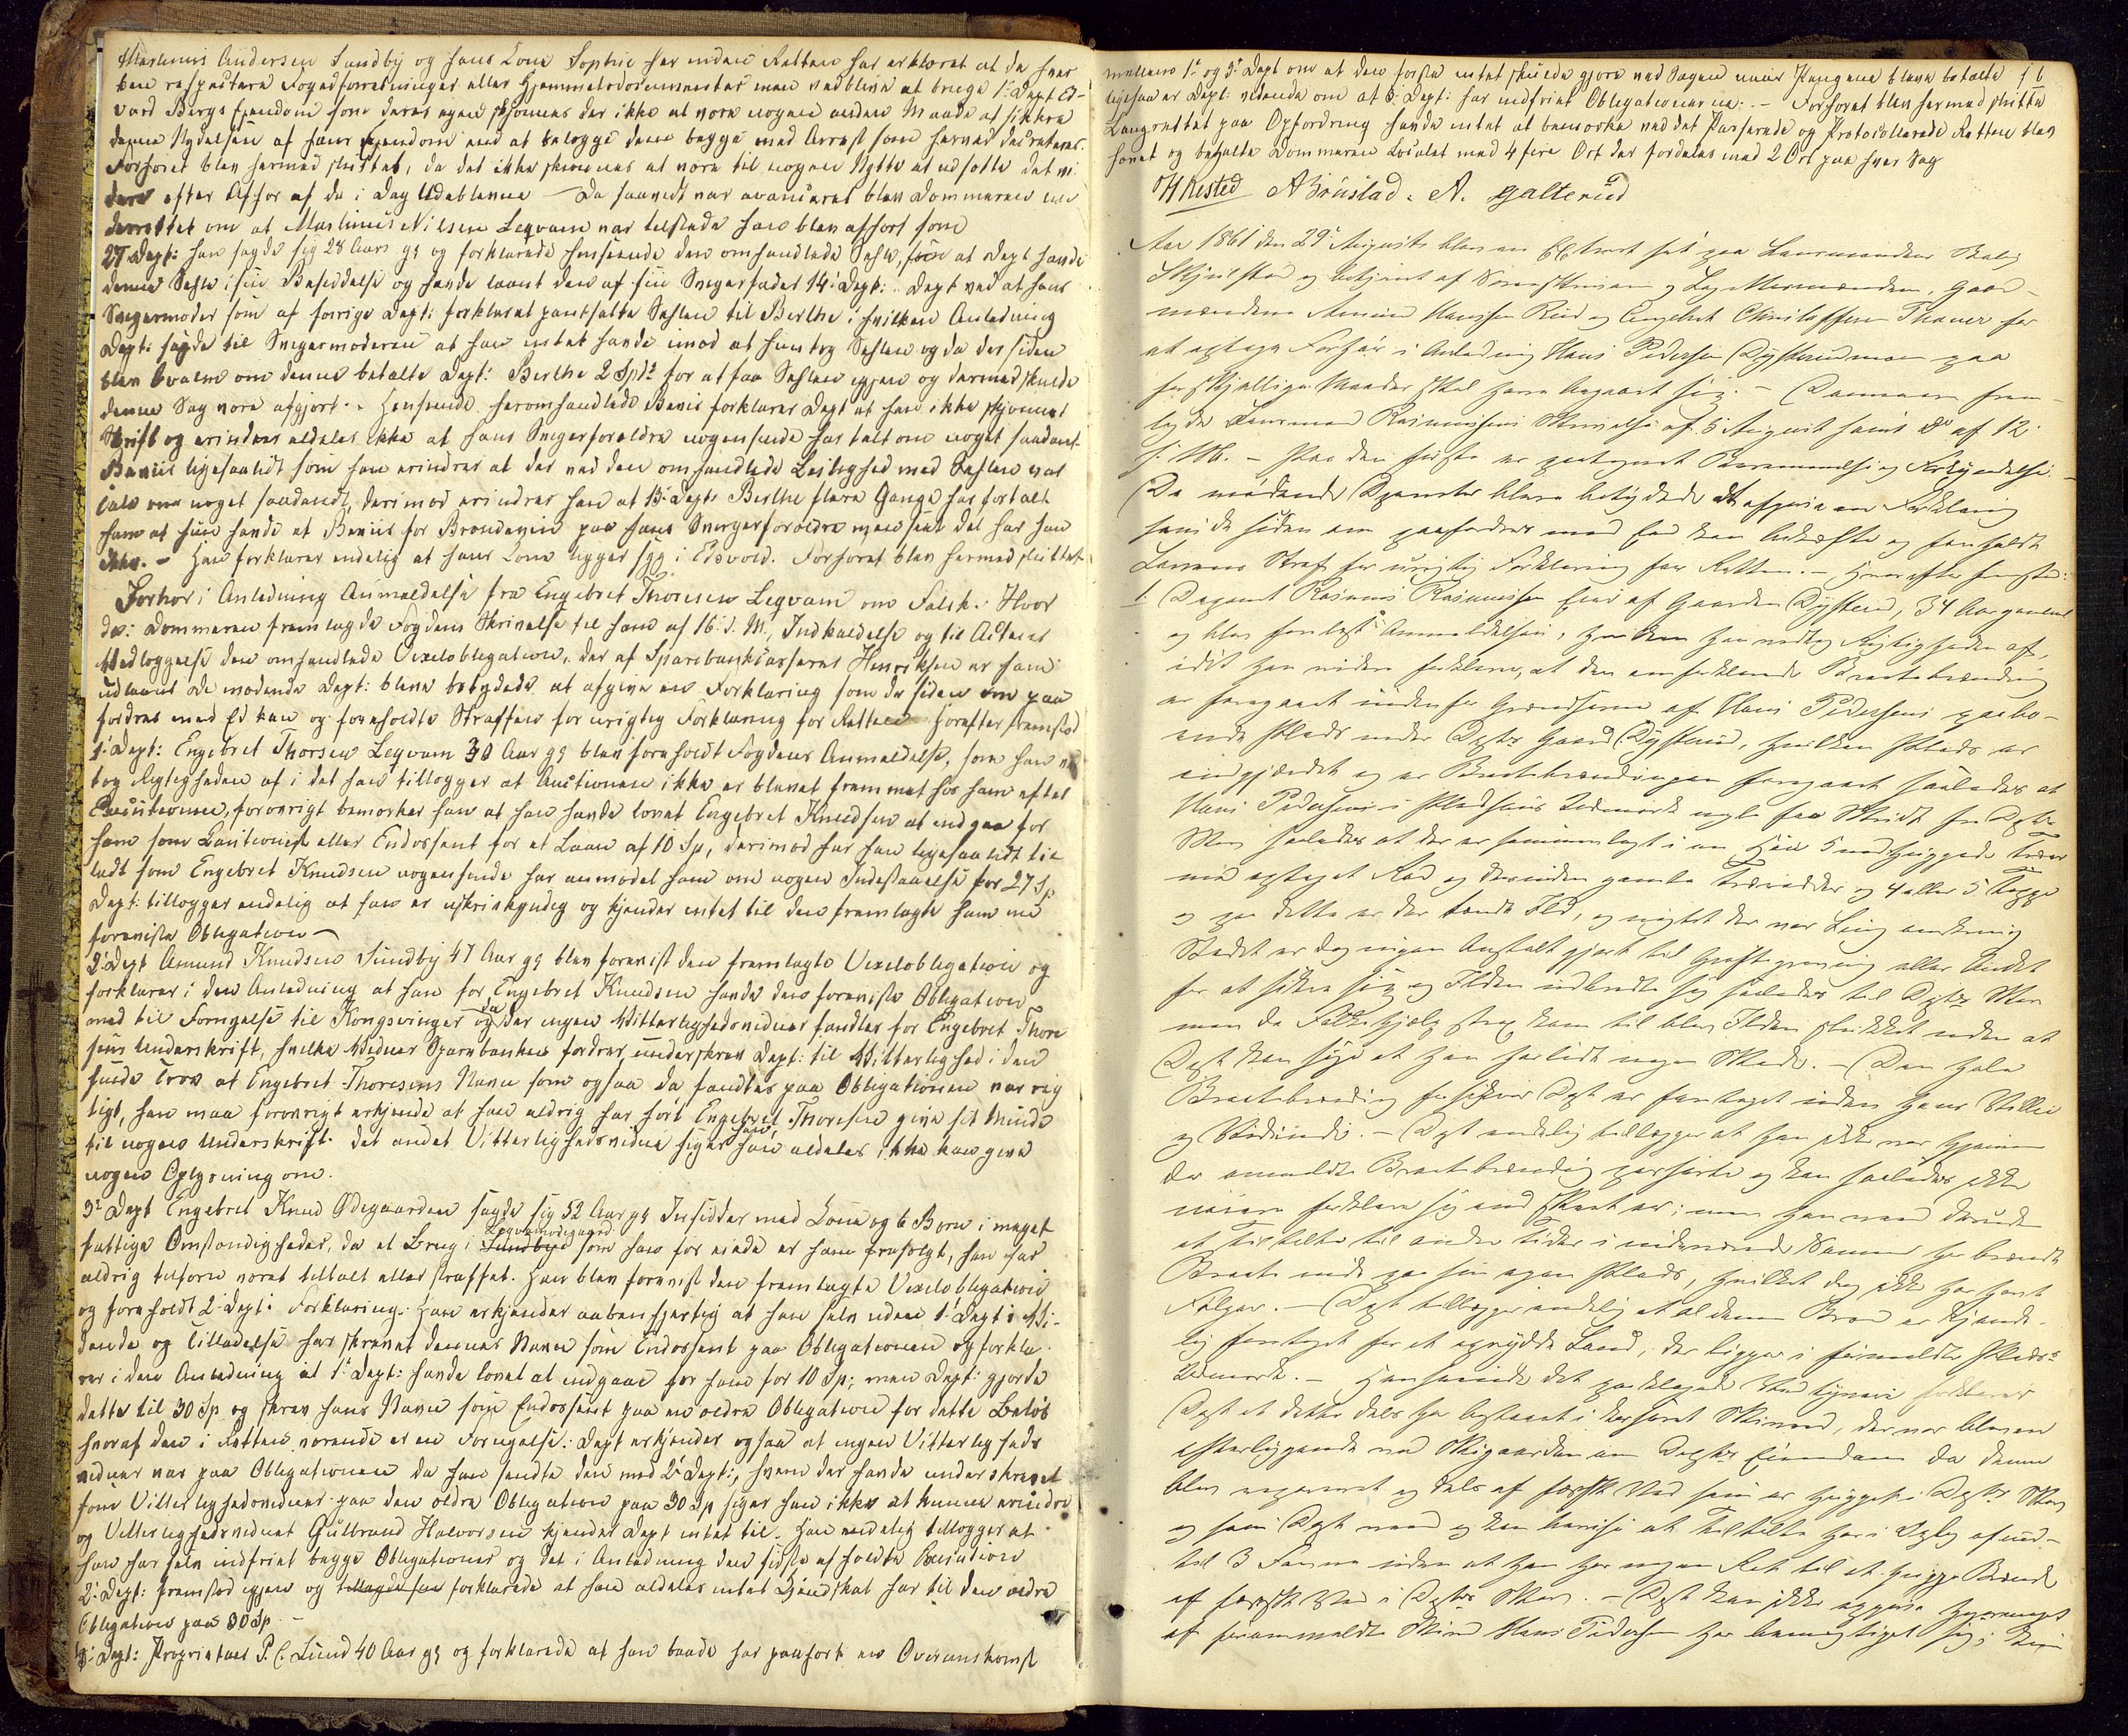 Martinus Andersen Sundby og hans Kone Sophie her inden Retten har erklæret at de hver
ken respectere Fogedforretninger eller Hjemmelsdocumenter men vedblive at bruge 1. Dept Ed-
vard Bergs Eiendom som deres egen skjønnes der ikke at være nogen anden Maade at sikkre
denne Nydelsen af hans Eiendom end at belægge dem begge med Arrest som herved decreteres.
Forhøret blev hermed sluttet, da det ikke skjønnes at være til nogen Nytte at udsætte det vi-
dere efter Afhør af de i Dag Udeblevne – Da saavidt var avanceret blev Dommeren un
derrettet om at Martinus Nilsen Legvam var tilstæde han blev afhørt som
27 Dept: han sagde sig 28 Aar gl og forklarede henseende den omhandlede Sæhle, at Dept havde
denne Sæhle i sin Besiddelse og havde laant den af sin Svigerfader 14. Dept: Dept ved at hans
Svigermoder som af forrige Dept: forklaret pantsatte Sæhlen til Berthe i hvilken Anledning
Dept: sagde til Svigermoderen at han intet havde imod at hun tog Sæhlen og da der siden
blev Qvalm om denne betalte Dept: Berthe 2 Spd for at faa Sæhlen igjen og dermed skulde
denne Sag være afgjort. Henseende heromhandlede Beviis forklarer Dept at han ikke skjønner
Skrift og erindrer aldeles ikke at hans Svigerforældre nogensinde har talt om noget saadant
Beviis ligesaalidt som han erindrer at der ved den omhandlede Leilighed med Sæhlen var
Tale om noget saadant, derimod erindrer han at 13. Depts Berthe flere Gange har fortalt
ham at hun havde et Beviis for Brændeviin paa hans Svigerforældre men seet det har han
ikke. – Han forklarer endelig at hans Kone ligger syg i Eidsvold. Forhøret blev hermed sluttet
Forhør i Anledning Anmeldelse fra Engebret Thoresen Legvam om Falsk. Hvor
da: Dommeren fremlagde Fogdens Skrivelse til ham af 16. d. M., Indkaldelse og til Acterne
Vedlæggelse den omhandlede Vexelobligation, der af Sparebankkasserer Henriksen er ham
udlaant De mødende Dept: bleve betydede at afgive en Forklaring som de siden om paa
fordres med Ed kan og foreholdte Straffen for urigtig Forklaring for Retten Herefter fremstod
1. Dept: Engebret Thorsen Legvam 30 Aar gl blev foreholdt Fogdens Anmeldelse, som han ved
tog Rigtigheden af i det han tillægger at Auctionen ikke er blevet fremmet hos ham efter
Executionen, forøvrigt bemærker han at han havde lovet Engebret Knudsen at indgaa for
ham som Cautionist eller Endossent for et Laan af 10 Sp, derimod har han ligesaalidt til
ladt som Engebret Knudsen nogensinde har anmodet ham om nogen Indestaaelse for 27 Sp.
Dept: tillægger endelig at han er uskrivkyndig og kjender intet til den fremlagte ham nu
foreviste Obligation –
2. Dept Amund Knudsen Sundby 47 Aar gl blev forevist den fremlagte Vexelobligation og
forklarer i den Anledning at han for Engebret Knudsen havde den foreviste Obligation
med til Fornyelse til Kongsvinger og da der ingen Vitterlighedsvidner fandtes for Engebret Thore
sens Underskrift, hvilke Vidner Sparebanken fordrer, underskrev Dept: til Vitterlighed i den
fulde Tro at Engebret Thoresens Navn som ogsaa da fandtes paa Obligationen var rig
tigt, han maa forøvrigt erkjende at han aldrig har hørt Engebret Thoresen give sit Minde
til nogen Underskrift. Det andet Vitterlighedsvidne siger han han aldeles ikke kan give
nogen Oplysning om.
3. Dept Engebret Knud Ødegaarden sagde sig 52 Aar gl Insidder med Kone og 6 Børn i meget
fattige Omstændigheder, da et Brug i Sundbye Legvamsgaard som han før eiede er ham frasolgt, han har
aldrig tilforn været tiltalt eller straffet. Han blev forevist den fremlagte Vexelobligation
og foreholdt 2. Dept: Forklaring. Han erkjender aabenhjertig at han selv uden 1. Depts Vi-
dende og Tilladelse har skrevet dennes Navn som Endossent paa Obligationen og forkla-
rer i den Anledning at 1. Dept: havde lovet at indgaae for ham for 10 Sp; men Dept: gjorde
dette til 30 Sp og skrev hans Navn som Endossent paa en ældre Obligation for dette Beløb
hvoraf den i Retten værende er en Fornyelse. Dept erkjender ogsaa at ingen Vitterligheds
vidner var paa Obligationen da han sendte den med 2. Dept:, hvem der havde underskrevet
som Vitterlighedsvidner paa den ældre Obligation paa 30 Sp siger han ikke at kunne erindre
og Vitterlighedsvidnet Gulbrand Halvorsen kjender Dept intet til. Han endelig tillægger at
han har selv indfriet begge Obligationer og det i Anledning den sidste afholdte Execution
2. Dept: fremstod igjen og tillagde han forklarede at han aldeles intet Kjendskab har til den ældre
Obligation paa 30 Sp. –
4. Dept: Proprietær P. C. Lund 40 Aar gl og forklarede at han baade har paahørt en Overenskomst
mellem 1. og 3. Dept om at den første intet skulde gjøre ved Sagen naar Pengene bleve betalte
ligesaa er Dept: vidende om at 3. Dept: har indfriet Obligationerne. – Forhøret blev hermed sluttet
Laugrettet paa Opfordring havde intet at bemærke ved det Passerede og Protocollerede Retten blev
hævet og betalte Dommeren Localet med 4 fire Ort der fordeles med 2 Ort paa hver Sag
A Brustad. A. Galterud
Aar 1861 den 29. August blev en Extraret sat paa Lensmandens Bolig
Skjulstad og betjent af Sorenskriveren og Lagrettesmændene, Gaard-
mændene Hansen Rud og Engebret Christoffersen for
at optage Forhør i Anledning Hans Pedersen Dysterudmoen paa
forskjellige Maader skal have begaaet sig. – Dommeren frem-
lagde Lensmand Rasmussens Skrivelse af 5 August samt Do af 12.
s. M. – Paa den første er paategnet Berammelse og Forkyndelse. –
De mødende Deponenter bleve betydede at afgive en Forklaring
som de siden om paafordres med Ed kan bekræfte og foreholdt
Lovens Straf for urigtig Forklaring for Retten. – Hvorefter fremstod:
1. Deponent Rasmus Rasmussen Eier af Gaarden Dysterud, 34 Aar gammel
og blev forelæst Anmeldelsen, hvilken han vedtog Rigtigheden af,
idet han videre forklarer, at den omforklarede Braatebrænding
er foregaaet indenfor Grændserne af Hans Pedersens paabo-
ende Plads under Depts Gaard Dysterud, hvilken Plads er
indgjærdet og er Braatebrændingen foregaaet saaledes at
Hans Pedersen i Pladsens Udmark nogle faa Skridt fra Depts
Skov saaledes at der er sammenlagt i en Hau 5 nedhuggede Træer
med optaget Rod og desuden gamle Trærødder og 4 eller 5 Toppe
og paa dette er der tændt Ild, og uagtet der var Lyng omkring
Stedet er dog ingen Anstalt gjort til Grøftegravning eller Andet
for at sikre sig og Ilden udbredte sig saaledes til Depts Skov
men da Folkehjælp strax kom til blev Ilden slukket uden at
Dept kan sige at han har lidt nogen Skade. – Den hele
Braatebrænding forsikrer Dept er foretaget uden hans Villie
og Vidende. – Dept endelig tillægger at han ikke var hjemme
da anmeldte Braatebrænding passerte og kan saaledes ikke
nøiere forklare sig end skeet er; men han veed desuden
at Tiltalte til andre Tider i indeværende Sommer har brændt
Braate inde paa sin egen Plads, hvilket dog ikke har havt
Følger. – Dept tillægger endelig at al denne Bræn er kjende-
lig foretaget for at oprydde Land, der ligger i formeldte Plads's
Udmark. – Henseende det paaklagede Vedtyveri forklarer
Dept at dette dels har bestaaet i tørhævet Skived, der var bleven
efterliggende ved Skigaarden om Depts Eiendom da denne
blev repareret og dels af færsk Ved som er hugget i Depts Skov
og som Dept veed og kan bevise at Tiltalte har i Dept: afsind-
tel 3 Favne uden at han har nogen Ret til at hugge Brænde
af færsk Ved i Depts Skov. – Dept kan ikke opgive hvormeget
af forommeldte Skived Hans Pedersen har bemægtiget sig;